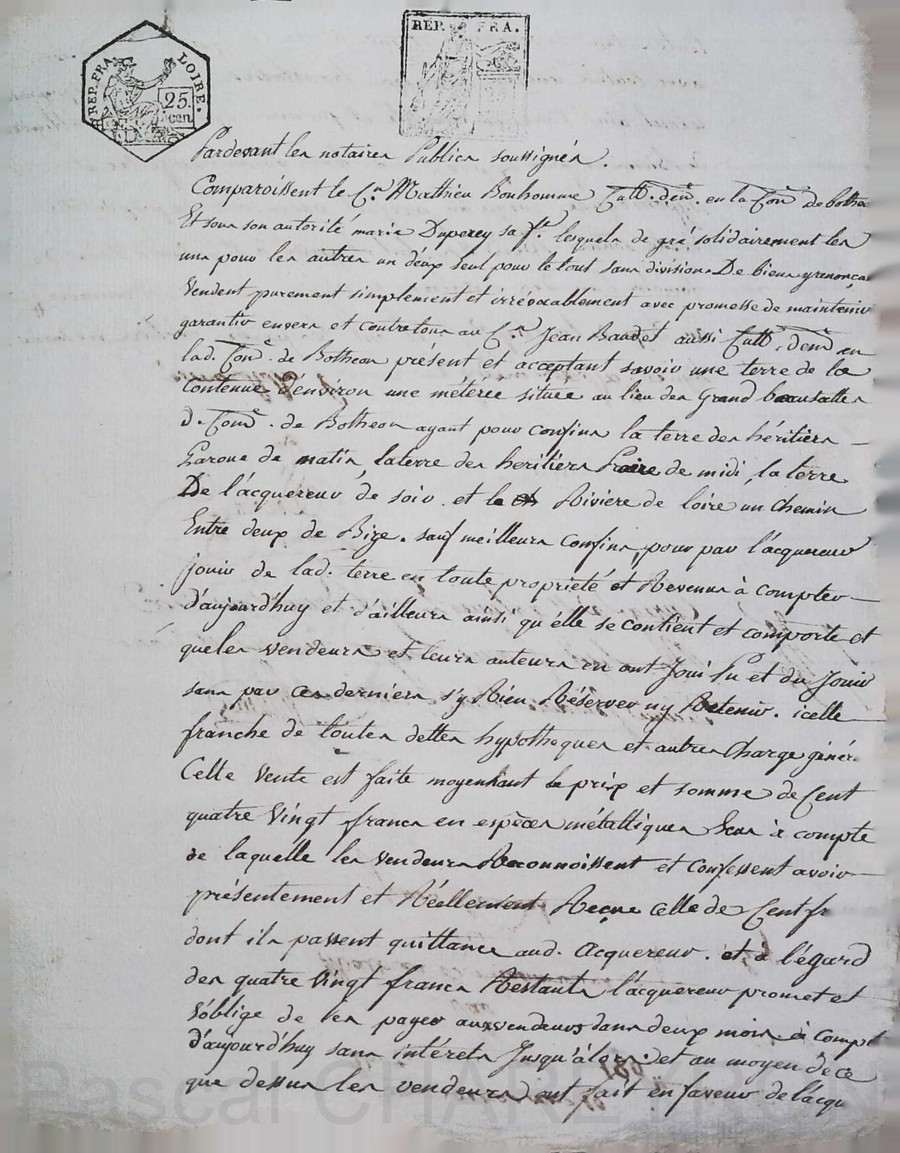 REP. FRA. LOIRE.
25. cen
REP. FRA.
Pardevant les notaires Publics soussignés.
Comparoissent le C.en Mathieu Bonhomme Cult. dem. en la Con.e de botheo
Et sous son autorité marie Duperey sa f.e lesquels de gré solidairement les
uns pour les autres un d'eux seul pour le tout sans division De biens y renonça
Vendent purement simplement et irrévocablement avec promesse de maintenir
garantir envers et contre tous au C.en Jean Baudet aussi Cult. dem.t en
lad. Com.e de Botheon présent et acceptant savoir une terre de la
Contenue d'environ une métérée située au lieu des Grand beausattes
d. Com.e de Botheon ayant pour confins la terre des héritiers
de matin, la terre des heritiers de midi, la terre
De l'acquereur de soir. et la Riviere de loire un Chemin
Entre deux de Bize. sauf meilleurs Confins, pour par l'acquereur
jouir de lad. terre en toute propriété et Revenus à compter
d'aujourd'huy et d'ailleurs ainsi qu'élle se contient et comporte et
que les vendeurs et leurs auteurs en ont Joui Pu et du Jouir
sans par ces derniers s'y Rien Réserver ny Retenir. icelle
franche de toutes dettes hypotheques et autres Charge génér.
Cette Vente est faite moyennant le prix et somme de Cent
quatre Vingt francs en espèces métalliques Sur à compte
de laquelle les Vendeurs Reconnoissent et Confessent avoir
présentement et Réellement Reçue celle de Cent fr
dont ils passent quittance aud. Acquereur. et à l'égard
des quatre Vingt francs Restants l'acquereur promet et
s'oblige de les payer aux vendeurs dans deux mois à compt
d'aujourd'huy sans intérets Jusqu'àlors. et au moyen de ce
que dessus les vendeurs ont fait en faveur de l'acqu
Pascal